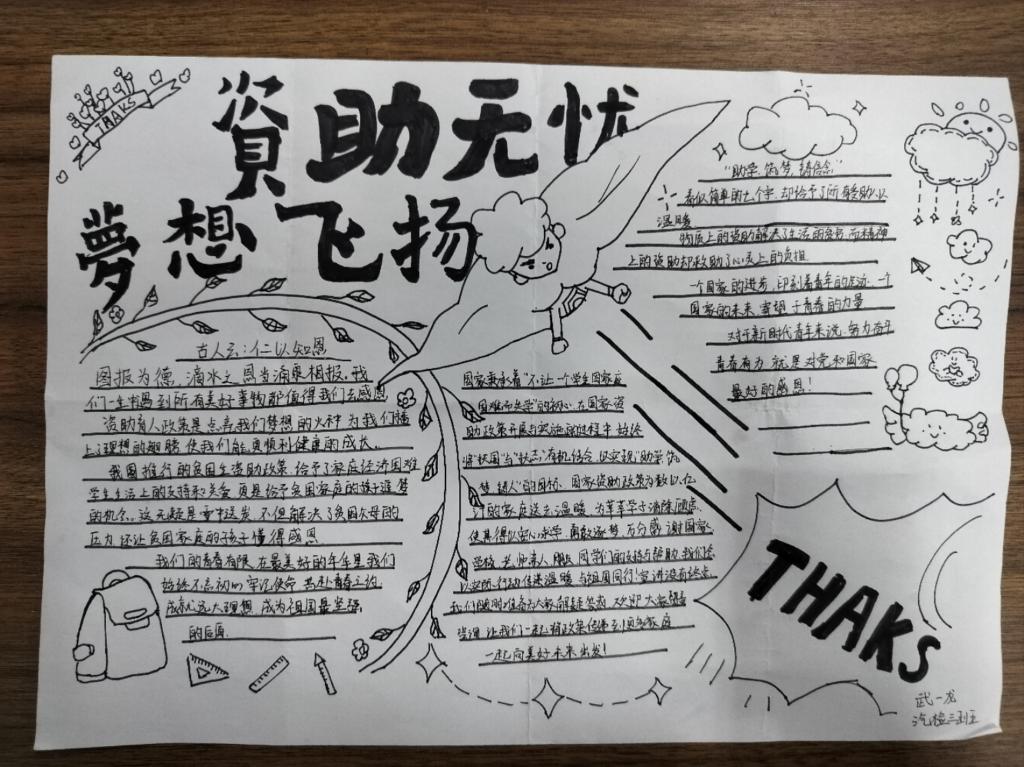 THAKS
資助无忧
夢想飞扬
古人云:仁以知恩
图报为德,滴水之恩当涌泉相报,我
们一生中遇到所有美好事物都值得我们去感恩
资助育人政策是点亮我们梦想的火种为我们插
上了理想的翅膀使我们能更顺利健康的成长.
我国推行的贫困生资助政策给予了家庭经济困难
学生生活上的支持和关爱更是给予贫困家庭的孩子逐梦
的机会.这无疑是雪中送炭不但解决了贫困父母的
压力还让贫困家庭的孩子懂得感恩
我们的青春有限在最美好的年华里我们
始终不忘初心牢记使命共赴青春之约
成就远大理想成为祖国最坚强
的后盾
国家秉承着"不让一个学生因家庭
困难而失学"的初心在国家资
助政策开展与实施的过程中始终
将"扶困"与"扶志"有机结合以实现"助学
梦铸人"的目标国家资助政策为数以亿
计的家庭送去温暖为莘莘学子消除顾虑
使其得以安心求学勇敢逐梦万分感谢国家
学校老师亲人朋友同学们的支持与帮助我们会
以实际行动传递温暖与祖国同行!宣讲没有终点
我们随时准备为大家解疑答惑欢迎大家
让我们一起将政策传递到更多家庭
一起向美好未来出发!
"助学,筑梦,铸信念"
看似简单的七个字,却给予了所有受助人以
温暖
物质上的资助解决了生活的负担而精神
上的资助却救助了心灵上的负担
一个国家的进步,印刻着青年的足迹,一个
国家的未来,寄望于青春的力量
对于新时代青年来说,努力奋斗
青春有为就是对党和国家
最好的感恩!
THAKS
武一龙
汽检三班